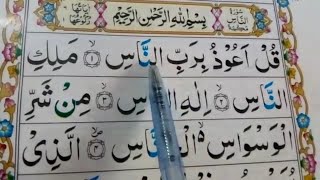 سُوْرَةُ النَّاسِ
بِسْمِ اللّٰهِ الرَّحْمٰنِ الرَّحِيْمِ
قُلْ اَعُوْذُ بِرَبِّ النَّاسِ ۙ﴿۱﴾ مَلِكِ
النَّاسِ ۙ﴿۲﴾ اِلٰهِ النَّاسِ ۙ﴿۳﴾ مِنْ شَرِّ
الْوَسْوَاسِ ۙ ﴿۴﴾ الَّذِیْ